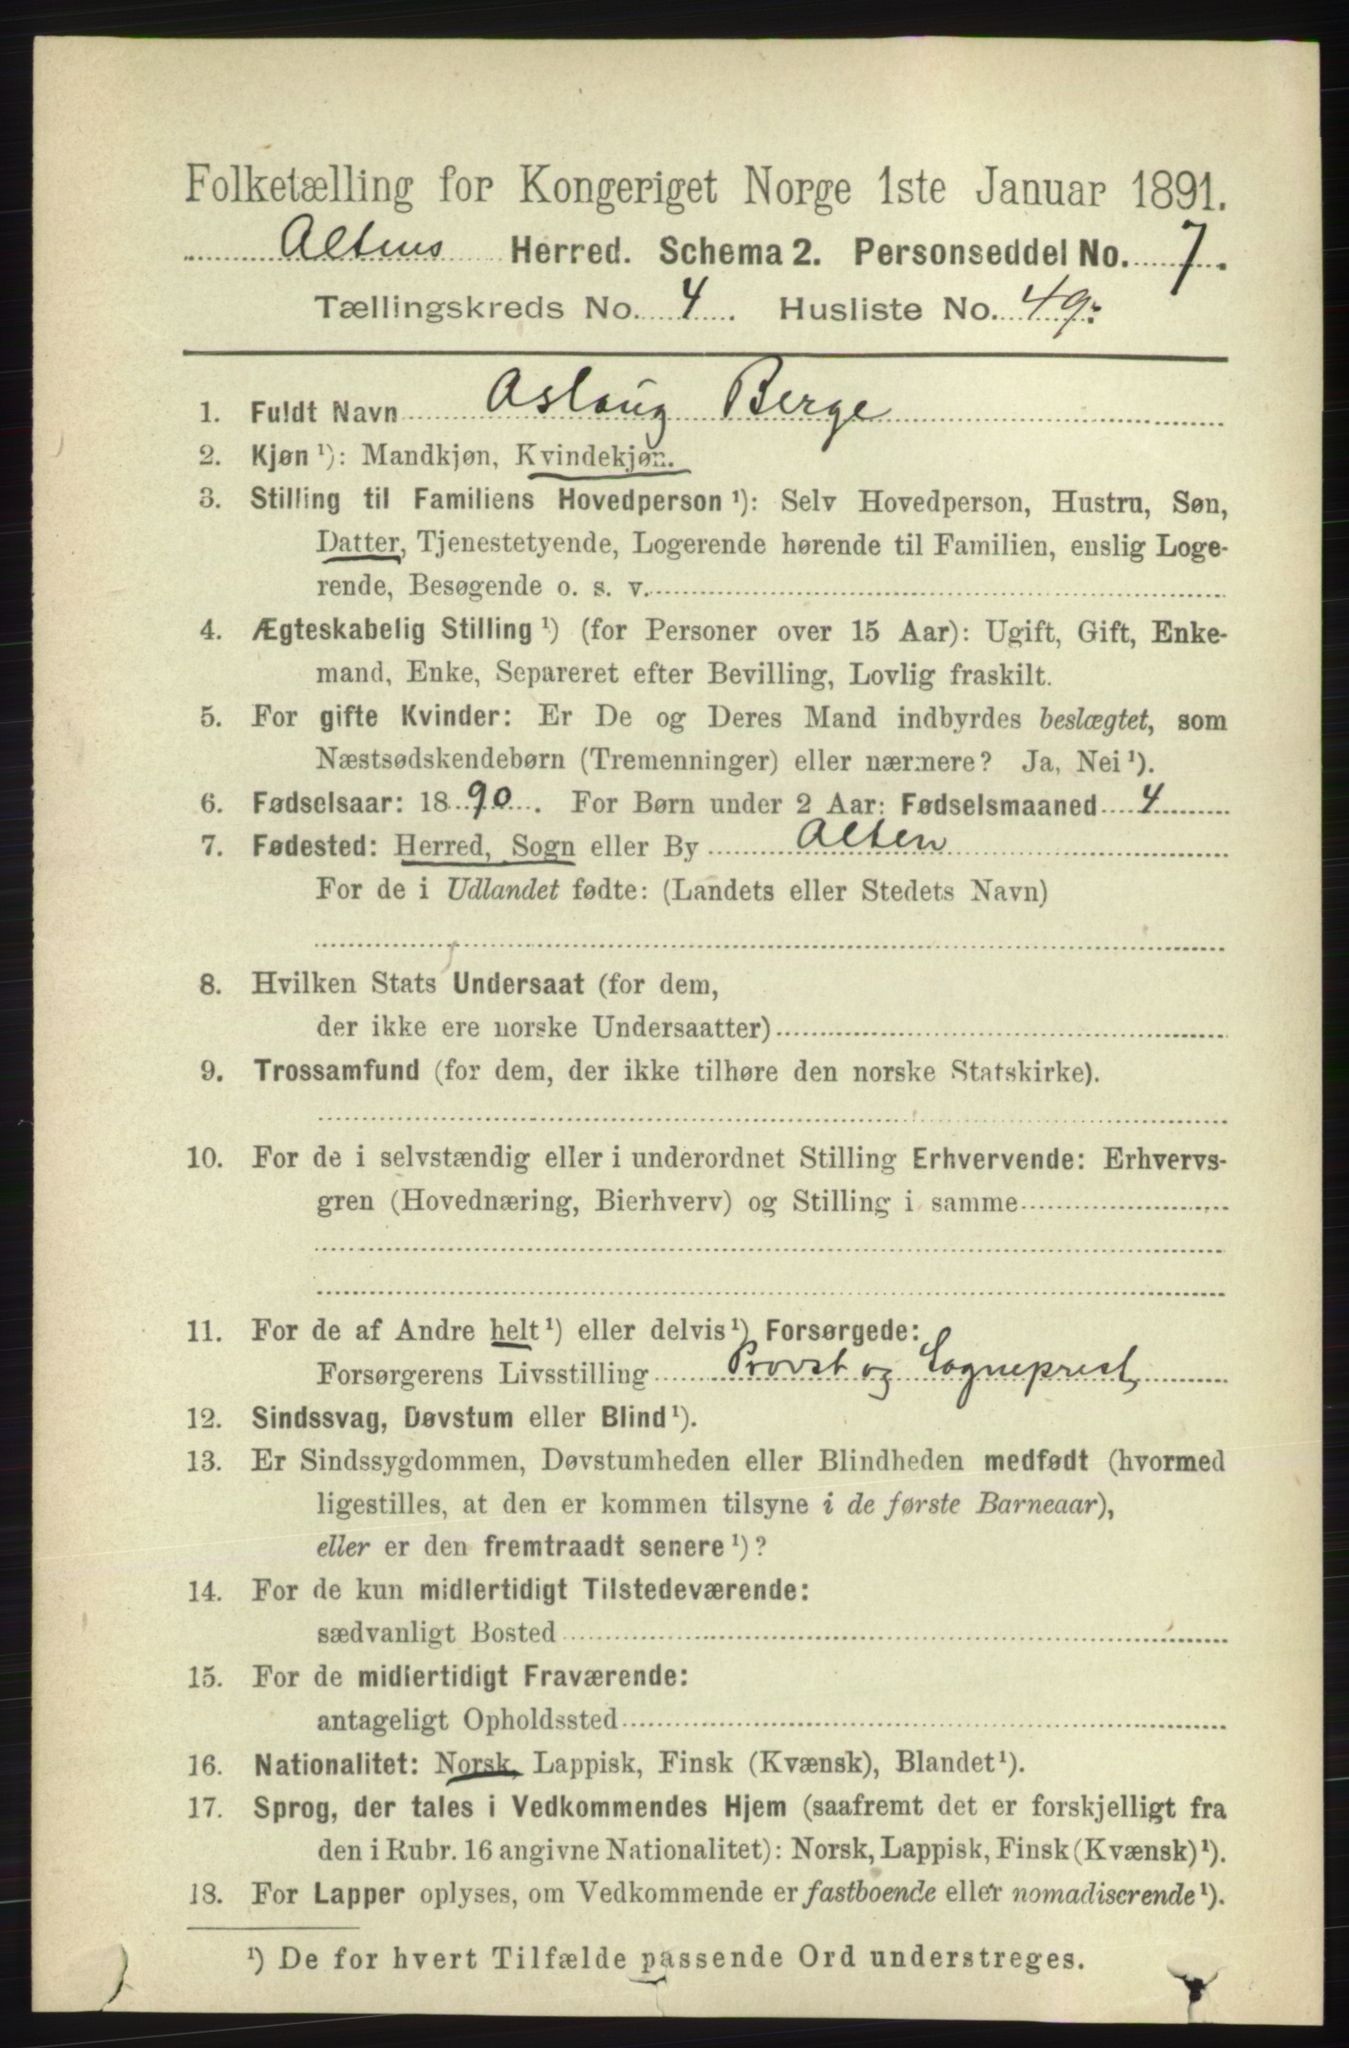 Folketælling for Kongeriget Norge 1ste Januar 1891.
Altens Herred. Schema 2. Personseddel No. 7.
Tællingskreds No. 4. Husliste No. 49.
1. Fuldt Navn Aslaug Berge
2. Kjøn ¹): Mandkjøn, Kvindekjøn.
3. Stilling til Familiens Hovedperson ¹): Selv Hovedperson, Hustru, Søn,
Datter, Tjenestetyende, Logerende hørende til Familien, enslig Loge-
rende, Besøgende o. s. v.
4. Ægteskabelig Stilling ¹) (for Personer over 15 Aar): Ugift, Gift, Enke-
mand, Enke, Separeret efter Bevilling, Lovlig fraskilt.
5. For gifte Kvinder: Er De og Deres Mand indbyrdes beslægtet, som
Næstsødskendebørn (Tremenninger) eller nærmere? Ja, Nei ¹).
6. Fødselsaar: 1890. For Børn under 2 Aar: Fødselsmaaned 4
7. Fødested: Herred, Sogn eller By Alten
For de i Udlandet fødte: (Landets eller Stedets Navn)
8. Hvilken Stats Undersaat (for dem,
der ikke ere norske Undersaatter)
9. Trossamfund (for dem, der ikke tilhøre den norske Statskirke).
10. For de i selvstændig eller i underordnet Stilling Erhvervende: Erhvervs-
gren (Hovednæring, Bierhverv) og Stilling i samme
11. For de af Andre helt ¹) eller delvis ¹) Forsørgede:
Forsørgerens Livsstilling Provst og Sogneprest
12. Sindssvag, Døvstum eller Blind ¹).
13. Er Sindssygdommen, Døvstumheden eller Blindheden medfødt (hvormed
ligestilles, at den er kommen tilsyne i de første Barneaar),
eller er den fremtraadt senere ¹)?
14. For de kun midlertidigt Tilstedeværende:
sædvanligt Bosted
15. For de midlertidigt Fraværende:
antageligt Opholdssted
16. Nationalitet: Norsk, Lappisk, Finsk (Kvænsk), Blandet ¹).
17. Sprog, der tales i Vedkommendes Hjem (saafremt det er forskjelligt fra
den i Rubr. 16 angivne Nationalitet): Norsk, Lappisk, Finsk (Kvænsk) ¹).
18. For Lapper oplyses, om Vedkommende er fastboende eller nomadiserende ¹).
¹) De for hvert Tilfælde passende Ord understreges.